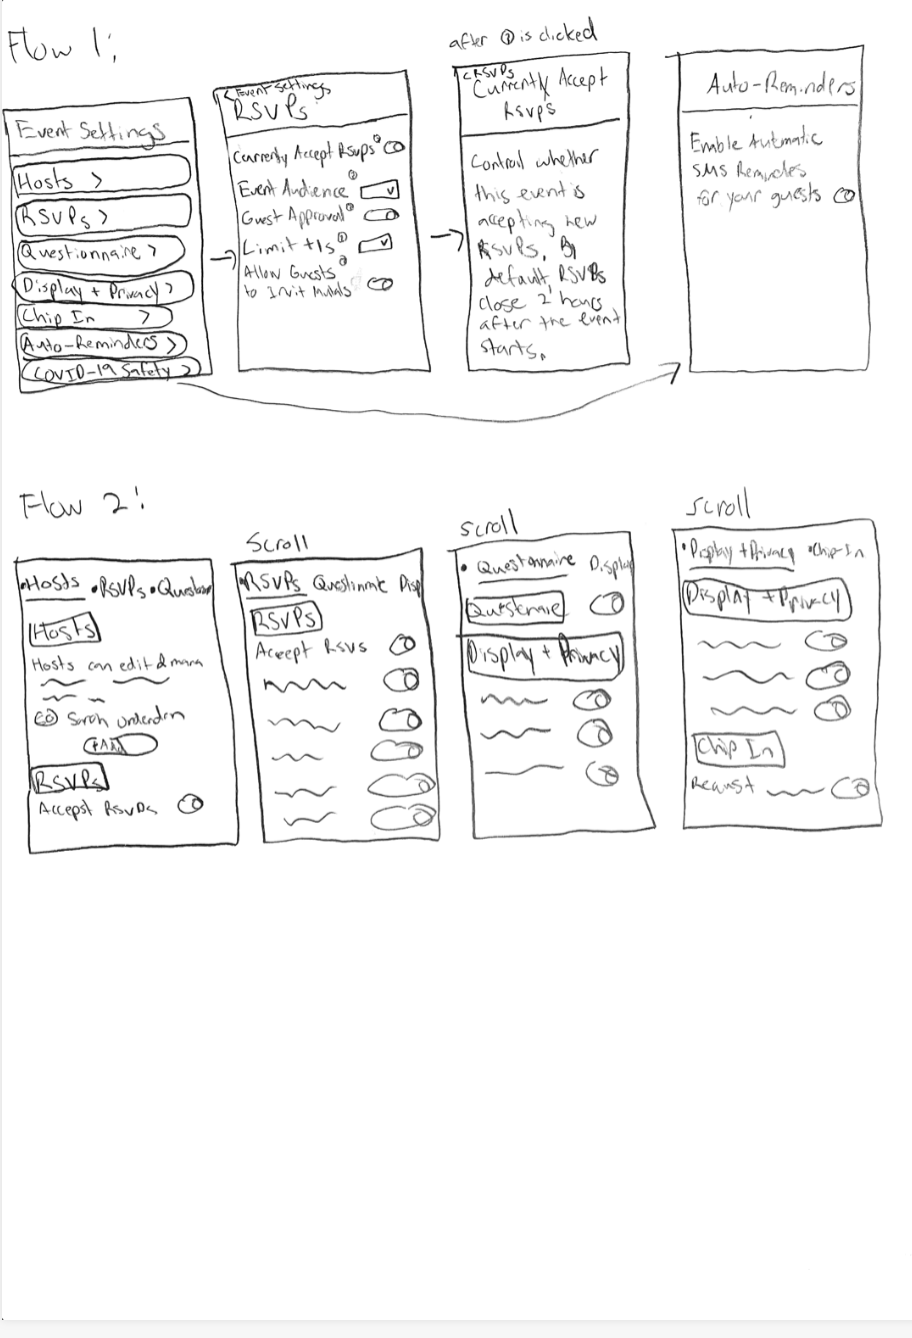 Flow 1:
after ⓘ is clicked
Event Settings
Hosts >
RSVPs >
Questionnaire >
Display + Privacy >
Chip In >
Auto-Reminders >
COVID-19 Safety >
< Event Settings
RSVPs
Currently Accept Rsvps ⓘ
Event Audience ⓘ
Guest Approval ⓘ
Limit +1s ⓘ
Allow Guests ⓘ
to Invit
< RSVPs
Currently Accept
Rsvps
Control whether
this event is
accepting new
RSVPs. By
default, RSVPs
close 2 hours
after the event
starts.
Auto-Reminders
Enable Automatic
SMS Reminders
for your guests
Flow 2:
•Hosts •RSVPs •Question
Hosts
Hosts can edit &
Sarah
+Add
RSVPs
Accepst RSVPs
Scroll
•RSVPs Questinnate Disp
RSVPs
Accept RSVS
Scroll
• Questonnaire Display
Display + Privacy
Scroll
•Display + Privacy •Chip-In
Display + Privacy
Chip In